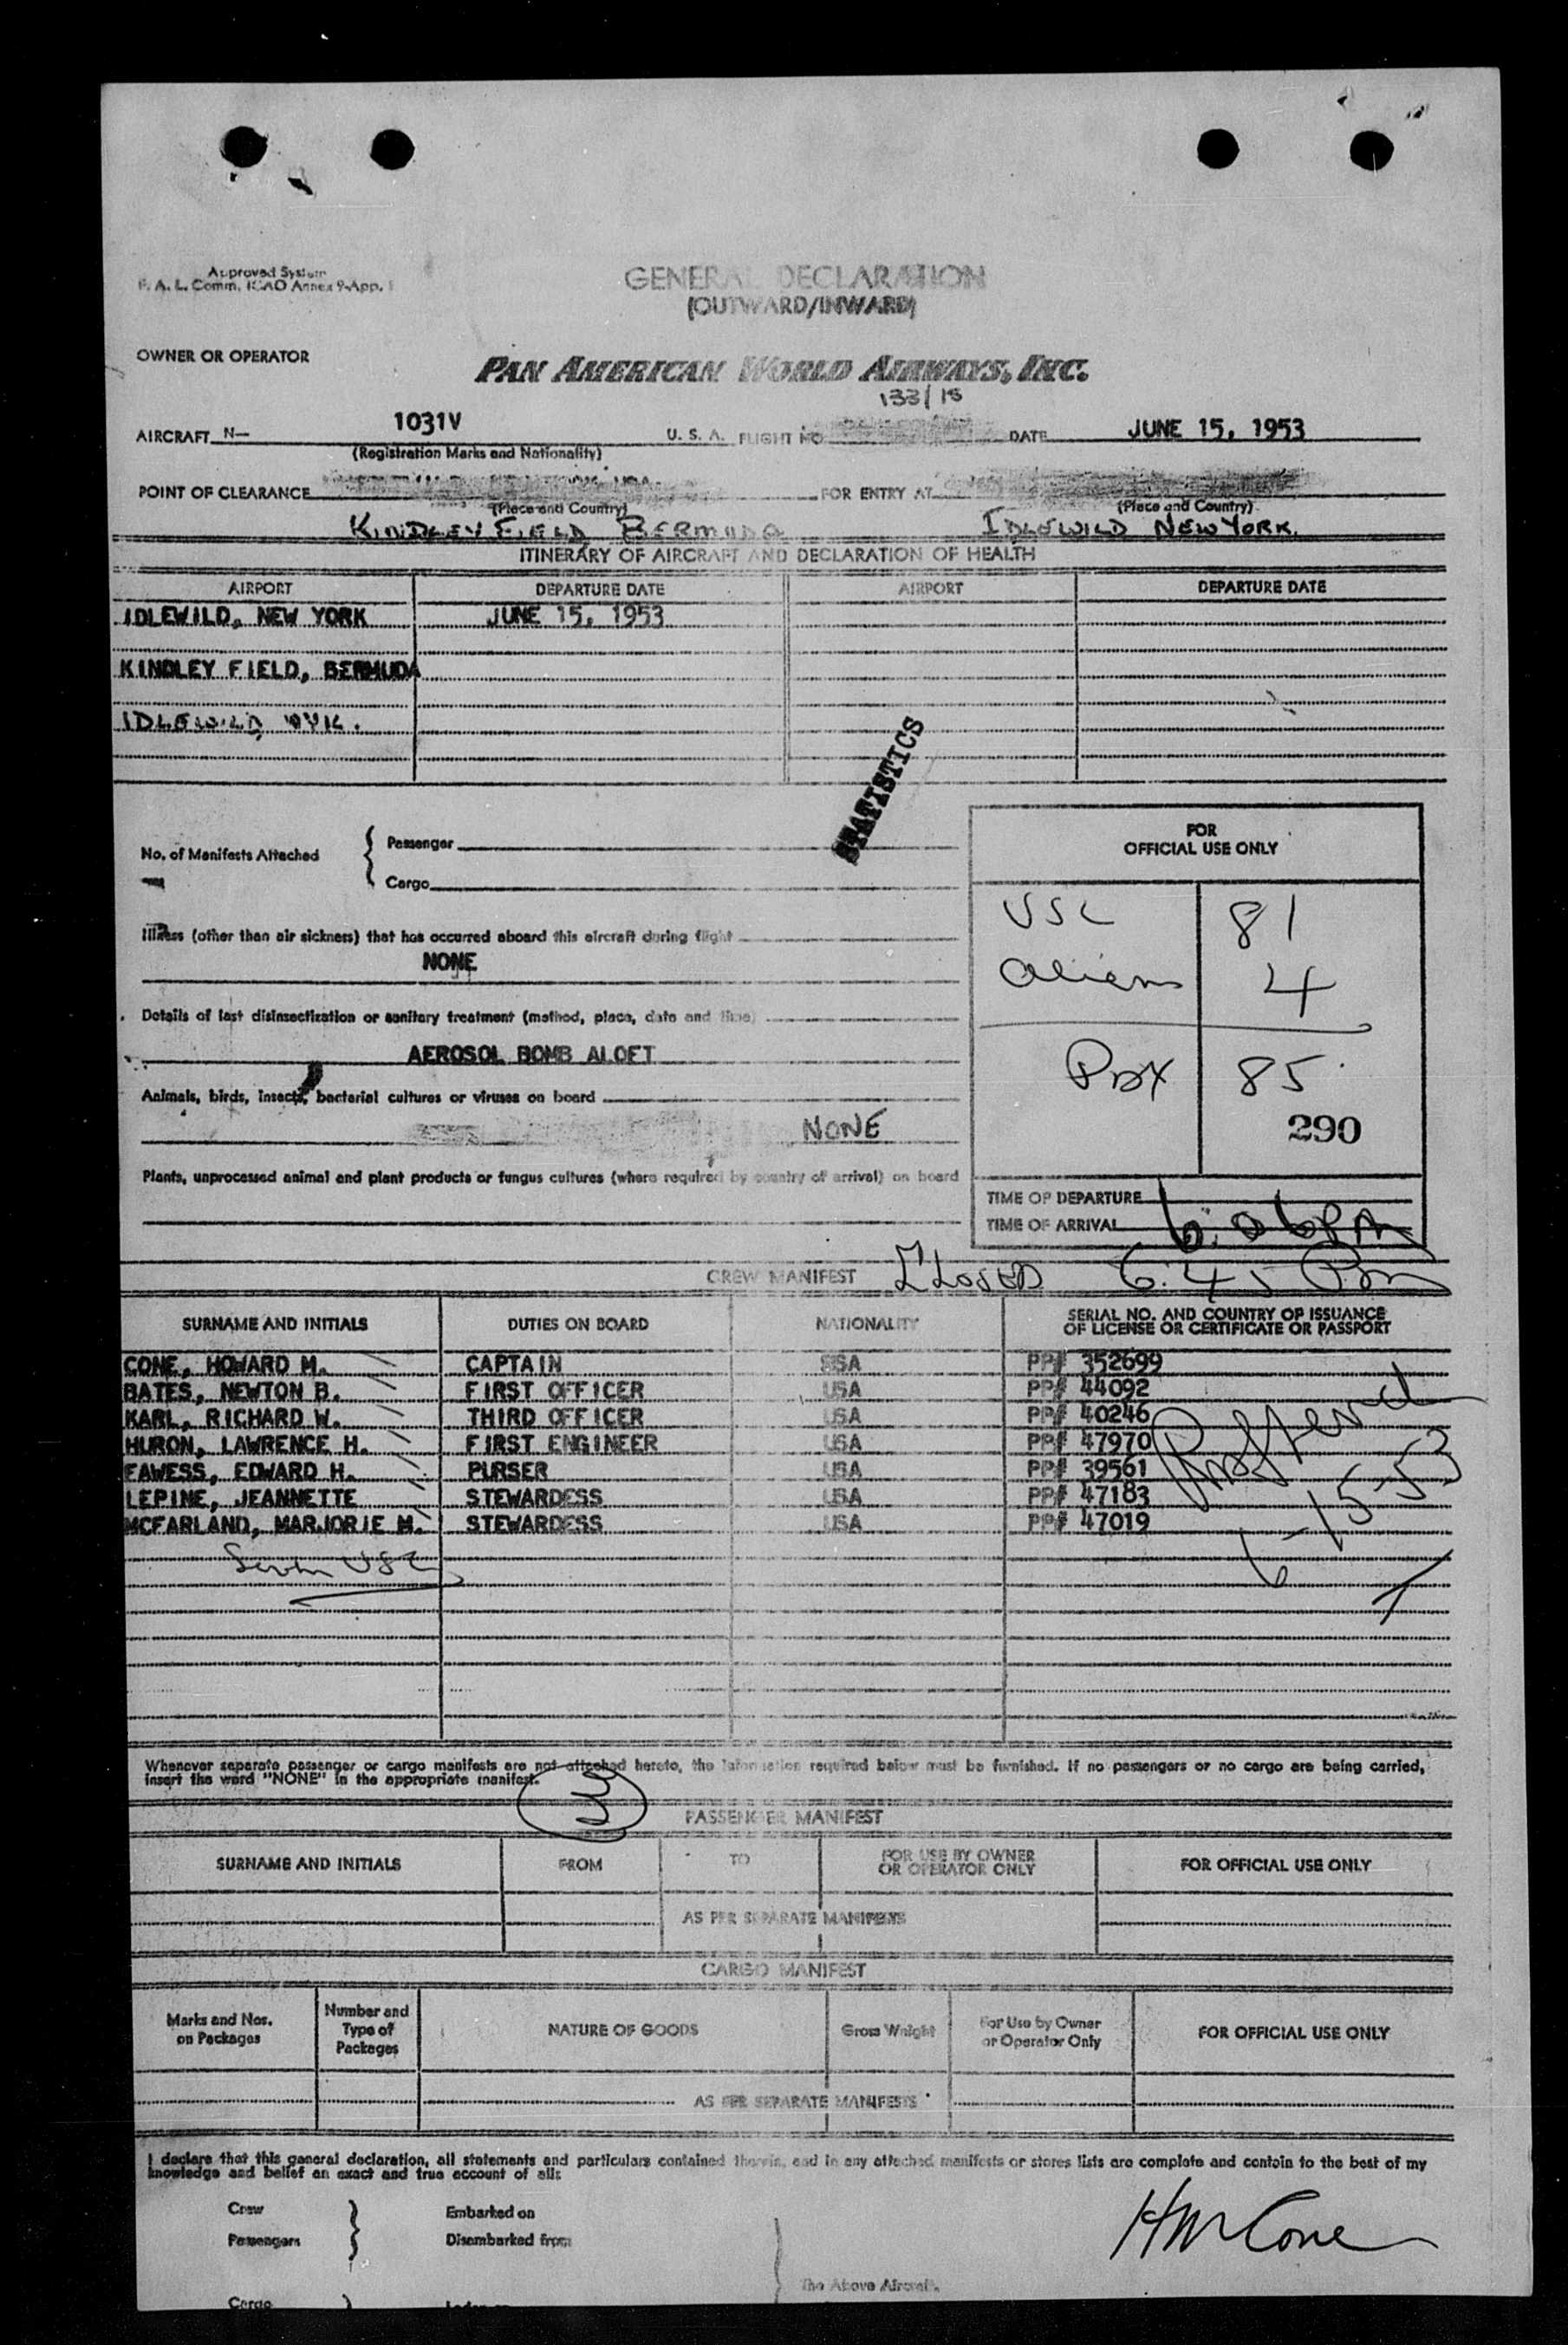 Approved System
F. A. L. Comm. ICAO Annex 9-App.
GENERAL DECLARATION
(OUTWARD/INWARD)
OWNER OR OPERATOR
PAN AMERICAN WORLD AIRWAYS, INC.
133/15
AIRCRAFT N- 1031V U. S. A. FLIGHT NO DATE JUNE 15, 1953
(Registration Marks and Nationality)
POINT OF CLEARANCE FOR ENTRY AT
(Place and Country) (Place and Country)
KINDLEY FIELD BERMUDA IDLEWILD NEW YORK.
ITINERARY OF AIRCRAFT AND DECLARATION OF HEALTH
AIRPORT DEPARTURE DATE AIRPORT DEPARTURE DATE
IDLEWILD, NEW YORK JUNE 15, 1953
KINDLEY FIELD, BERMUDA
IDLEWILD NYK.
STATISTICS
FOR
OFFICIAL USE ONLY
No. of Manifests Attached { Passenger
Cargo
USC 81
Aliens 4
Illness (other than air sickness) that has occurred aboard this aircraft during flight
NONE
Details of last disinsectization or sanitary treatment (method, place, date and time)
AEROSOL BOMB ALOFT
Pax 85
Animals, birds, insects, bacterial cultures or viruses on board
NONE
290
Plants, unprocessed animal and plant products or fungus cultures (where required by country of arrival) on board
TIME OF DEPARTURE
TIME OF ARRIVAL 6.06PM
CREW MANIFEST CLOSED 6:45 PM
SURNAME AND INITIALS DUTIES ON BOARD NATIONALITY SERIAL NO. AND COUNTRY OF ISSUANCE
OF LICENSE OR CERTIFICATE OR PASSPORT
CONE, HOWARD M. CAPTAIN SSA PP# 352699
BATES, NEWTON B. FIRST OFFICER USA PP# 44092
KARL, RICHARD W. THIRD OFFICER USA PP# 40246
HURON, LAWRENCE H. FIRST ENGINEER USA PP# 47970
FAWESS, EDWARD H. PURSER USA PP# 39561
LEPINE, JEANNETTE STEWARDESS USA PP# 47183
MCFARLAND, MARJORIE M. STEWARDESS USA PP# 47019
6-15-53
Seven USC
Whenever separate passenger or cargo manifests are not attached hereto, the information required below must be furnished. If no passengers or no cargo are being carried,
insert the word "NONE" in the appropriate manifest.
3
PASSENGER MANIFEST
SURNAME AND INITIALS FROM TO FOR USE BY OWNER
OR OPERATOR ONLY FOR OFFICIAL USE ONLY
AS PER SEPARATE MANIFESTS
CARGO MANIFEST
Marks and Nos.
on Packages Number and
Type of
Packages NATURE OF GOODS Gross Weight For Use by Owner
or Operator Only FOR OFFICIAL USE ONLY
AS PER SEPARATE MANIFESTS
I declare that this general declaration, all statements and particulars contained therein, and in any attached manifests or stores lists are complete and contain to the best of my
knowledge and belief an exact and true account of all:
Crew Embarked on
Passengers } Disembarked from
HM Cone
The Above Aircraft.
Cargo